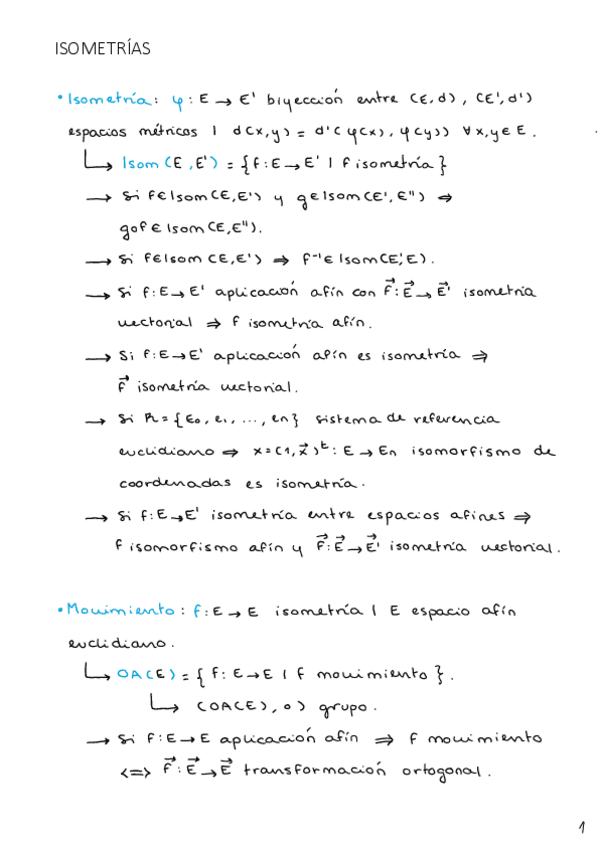 ISOMETRÍAS
• Isometría: φ: E → E' biyección entre (E, d), (E', d')
espacios métricos | d(x,y) = d'(φ(x), φ(y)) ∀x,y ∈ E.
↳ Isom (E, E') = {f: E → E' | f isometría}
→ Si f ∈ Isom (E, E') y g ∈ Isom (E', E'') ⇒
g∘f ∈ Isom (E, E'').
→ Si f ∈ Isom (E, E') ⇒ f⁻¹ ∈ Isom (E', E).
→ Si f: E → E' aplicación afín con f⃗: E⃗ → E⃗' isometría
vectorial ⇒ f isometría afín.
→ Si f: E → E' aplicación afín es isometría ⇒
f⃗ isometría vectorial.
→ Si R = {E₀, e₁, ..., en} sistema de referencia
euclidiano ⇒ x = (1, x⃗)ᵗ: E → En isomorfismo de
coordenadas es isometría.
→ Si f: E → E' isometría entre espacios afines ⇒
f isomorfismo afín y f⃗: E⃗ → E⃗' isometría vectorial.
• Movimiento: f: E → E isometría | E espacio afín
euclidiano.
↳ OA(E) = {f: E → E | f movimiento}.
↳ (OA(E), ∘) grupo.
→ Si f: E → E aplicación afín ⇒ f movimiento
<=> f⃗: E⃗ → E⃗ transformación ortogonal.
1